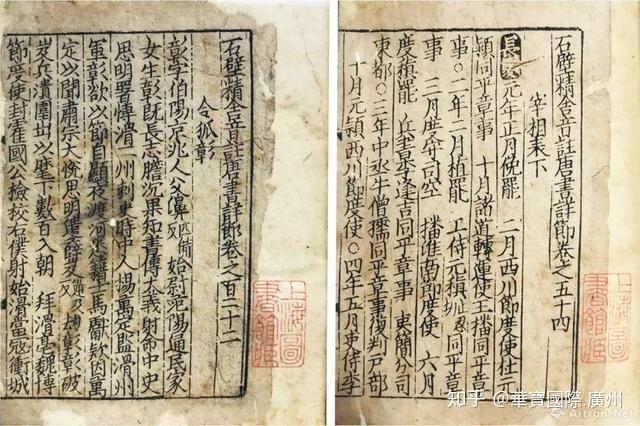 石壁精舍音註唐書詳節卷之百二十二
令狐彰
彰字伯陽京兆人父濞匹備反始尉范陽通民家
女生彰旣長志膽沉果知書傳大義射命中史
思明署傳滑二州刺史時中人揚萬定監滑州
軍彰欲以節自顯夜渡河悉藉士馬獻欵因萬
定以聞肅宗大悅思明遣薛岌 劫彰彰破
岌兵潰圍出以麾下數百入朝 拜滑亳魏博
節度使封霍國公檢校右僕射始滑亳寇衝城
上海圖
書館藏
石壁精舍音註唐書詳節卷之五十四
宰相表下
長慶元年正月俛罷 二月西川節度使杜元
穎同平章事 十月諸道轉運使王播同平章
事○二年二月植罷 工侍元稹 同平章
事 三月度守司空 播淮南節度使 六月
度稹罷 兵書李逢吉同平章事 分司
東都○三年中丞牛僧孺同平章事復判戶部
十月元穎西川節度使○四年五月吏侍李
上海圖
書館藏
知乎 @華寶國際.廣州
Artron.Net